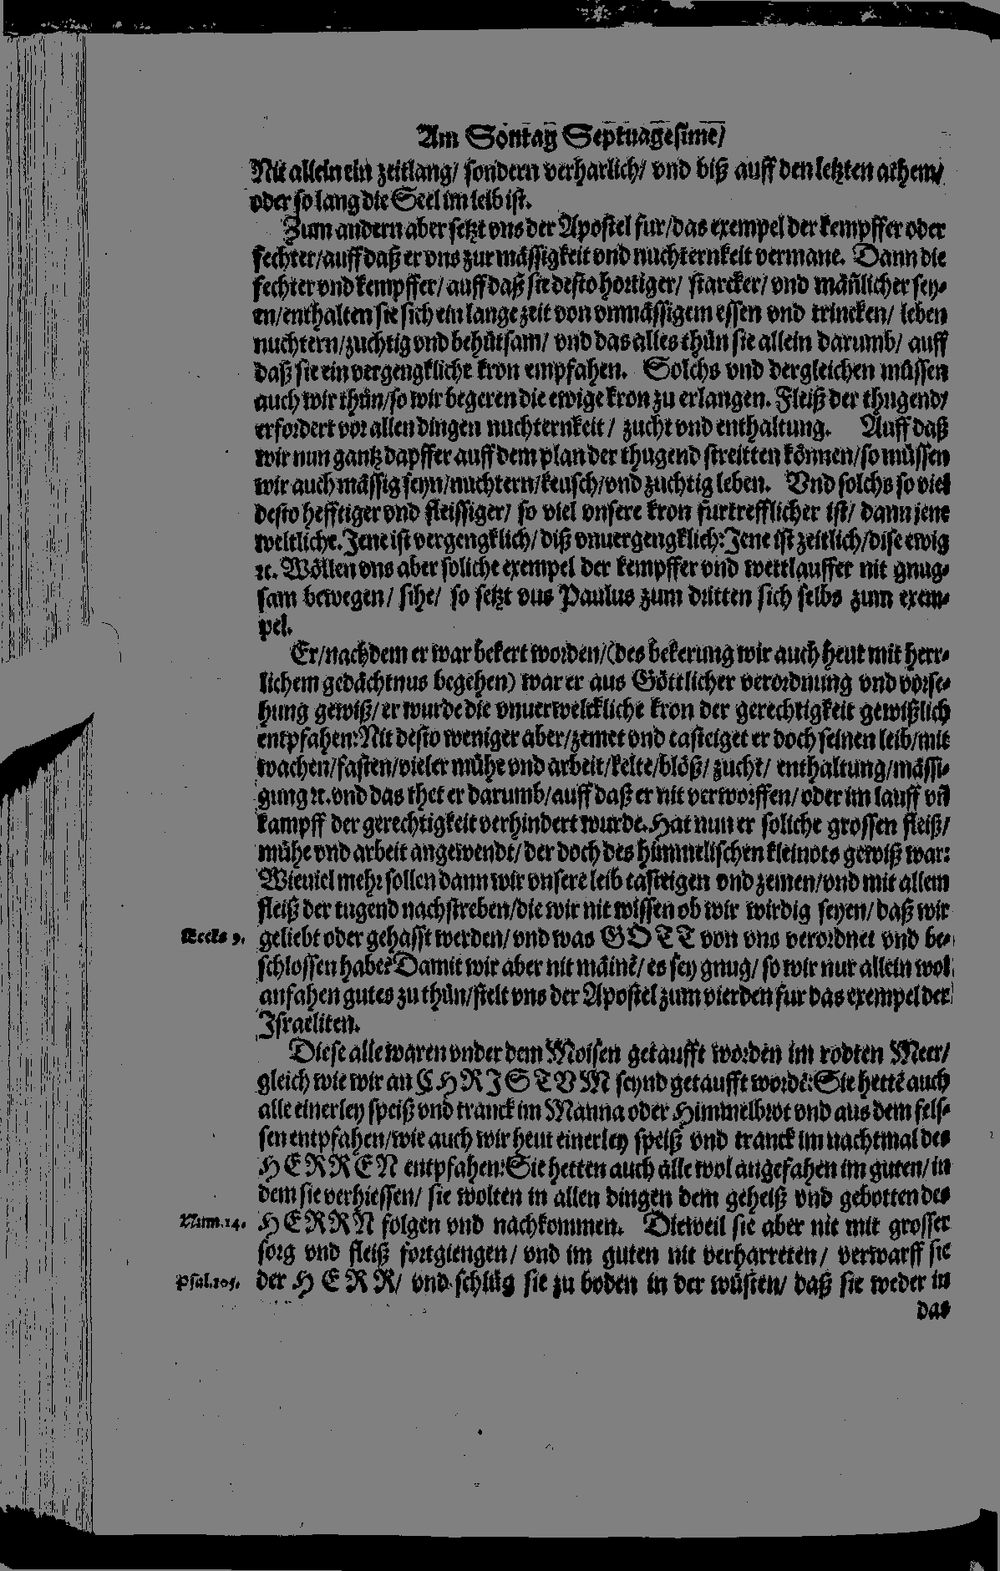 Am Sontag Septuagesime/
Nit allein ein zeitlang/ sondern verharlich/ vnd biß auff den letzten athem/
oder so lang die Seel im leib ist.
Zum andern aber setzt vns der Apostel fur/das exempel der kempffer oder
fechter/auff daß er vns zur mässigkeit vnd nuchternkeit vermane. Dann die
fechter vnd kempffer/ auff daß sie desto hortiger/ starcker/ vnd mäñlicher sey-
en/enthalten sie sich ein lange zeit von vnmässigem essen vnd trincken/ leben
nuchtern/zuchtig vnd behůtsam/ vnd das alles thůn sie allein darumb/ auff
daß sie ein vergengkliche kron empfahen. Solchs vnd dergleichen müssen
auch wir thůn/so wir begeren die ewige kron zu erlangen. Fleiß der thugend/
erfordert vor allen dingen nuchternkeit/ zucht vnd enthaltung. Auff daß
wir nun gantz dapffer auff dem plan der thugend streitten können/so müssen
wir auch mässig seyn/nuchtern/keusch/vnd zuchtig leben. Vnd solchs so viel
desto hefftiger vnd fleissiger/ so viel vnsere kron furtrefflicher ist/ dann jene
weltliche. Jene ist vergengklich/ diß vnuergengklich: Jene ist zeitlich/dise ewig
ꝛc. Wöllen vns aber soliche exempel der kempffer vnd wettlauffer nit gnug-
sam bewegen/ sihe/ so setzt vns Paulus zum dritten sich selbs zum exem-
pel.
Er/nach dem er war bekert worden/(des bekerung wir auch heut mit herr-
lichem gedächtnus begehen) war er aus Göttlicher verordnung vnd vorse-
hung gewiß/ er wurde die vnuerwelckliche kron der gerechtigkeit gewißlich
entpfahen: Nit desto weniger aber/zemet vnd casteiget er doch seinen leib/mit
wachen/fasten/vieler mühe vnd arbeit/kelte/blöß/ zucht/ enthaltung/mässi-
gung ꝛc. vnd das thet er darumb/auff daß er nit verworffen/ oder im lauff vñ
kampff der gerechtigkeit verhindert wurde. Hat nun er soliche grossen fleiß/
mühe vnd arbeit angewendt/ der doch des himmelischen kleinots gewiß war:
Wieuiel mehr sollen dann wir vnsere leib casteigen vnd zemen/vnd mit allem
fleiß der tugend nachstreben/die wir nit wissen ob wir wirdig seyen/ daß wir
Eccle 9. geliebt oder gehasst werden/ vnd was GOTT von vns verordnet vnd be-
schlossen habe? Damit wir aber nit mäinē/ es sey gnug/ so wir nur allein wol
anfahen gutes zu thůn/stelt vns der Apostel zum vierden fur das exempel der
Israeliten.
Diese alle waren vnder dem Moisen getaufft worden im rodten Meer/
gleich wie wir an CHRISTVM seynd getaufft wordē: Sie hettē auch
alle einerley speiß vnd tranck im Manna oder Himmelbrot vnd aus dem fels-
sen entpfahen/wie auch wir heut einerley speiß vnd tranck im nachtmal des
HERREN entpfahen: Sie hetten auch alle wol angefahen im guten/ in
dem sie verhiessen/ sie wolten in allen dingen dem geheiß vnd gebotten des
Num.14. HERRN folgen vnd nachkommen. Dieweil sie aber nit mit grosser
sorg vnd fleiß fortgiengen/ vnd im guten nit verharreten/ verwarff sie
Psal.105. der HERR/ vnd schlůg sie zu boden in der wüsten/ daß sie weder in
das